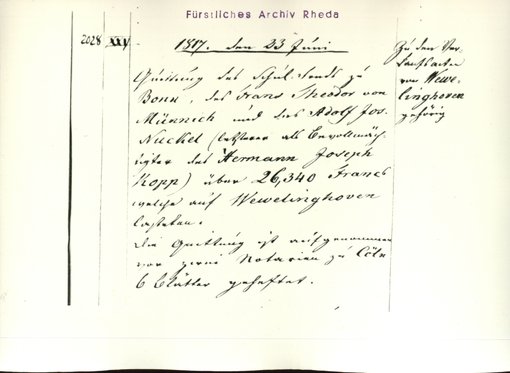 Fürstliches Archiv Rheda
2028 XXV
1817. den 23 Juni
Quittung des Schul-fonds zu
Bonn, des Franz Theodor von
Münnich und des Adolf Jos.
Nückel (letzterer als Bevollmäch
tigter des Hermann Joseph
Kopp) über 26,340 Francs
welche auf Wewelinghoven
lasteten.
Die Quittung ist aufgenommen
vor zwei Notarien zu Cöln
6 Blätter geheftet.
Zu den Ver
kaufsacten
von Weve-
linghoven
gehörig